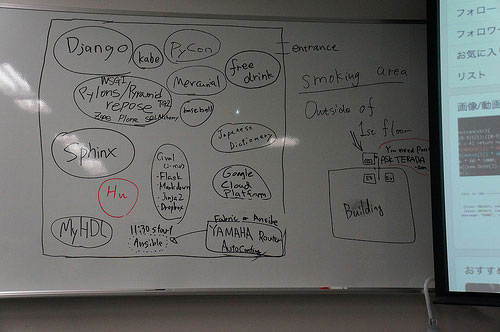 Django
kabe
PyCon
entrance
free
drink
Mercurial
WSGI
Pylons/Pyramid
repose
TG2
Zope Plone SQLAlchemy
baseball
smoking area
Outside of
1st floor
Japanese
Dictionary
You need Pass
ASK TERADA
-san
Sphinx
Flask
Markdown
Jinja2
Dropbox
Google
Cloud
Platform
EV
EV
Building
Hu
MyHDL
11:30 start
Ansible
Fabric or Ansible
YAMAHA Router
AutoConfig
フォロー
フォロワー
お気に入り
リスト
画像/動画
おすす